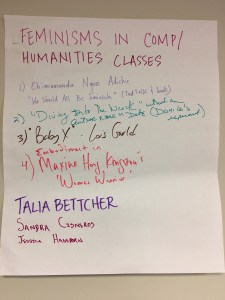 FEMINISMS IN COMP/
HUMANITIES CLASSES
1) Chimamanda Ngozi Adichie
"We Should All Be Feminists" (Ted Talk & book)
2) "Diving Into The Wreck" without an
author's name or date
3) "Baby X" - Lois Gould
Embodiment in
4) Maxine Hong Kingston's
"Woman Warrior"
TALIA BETTCHER
SANDRA CISNEROS
JESSICA